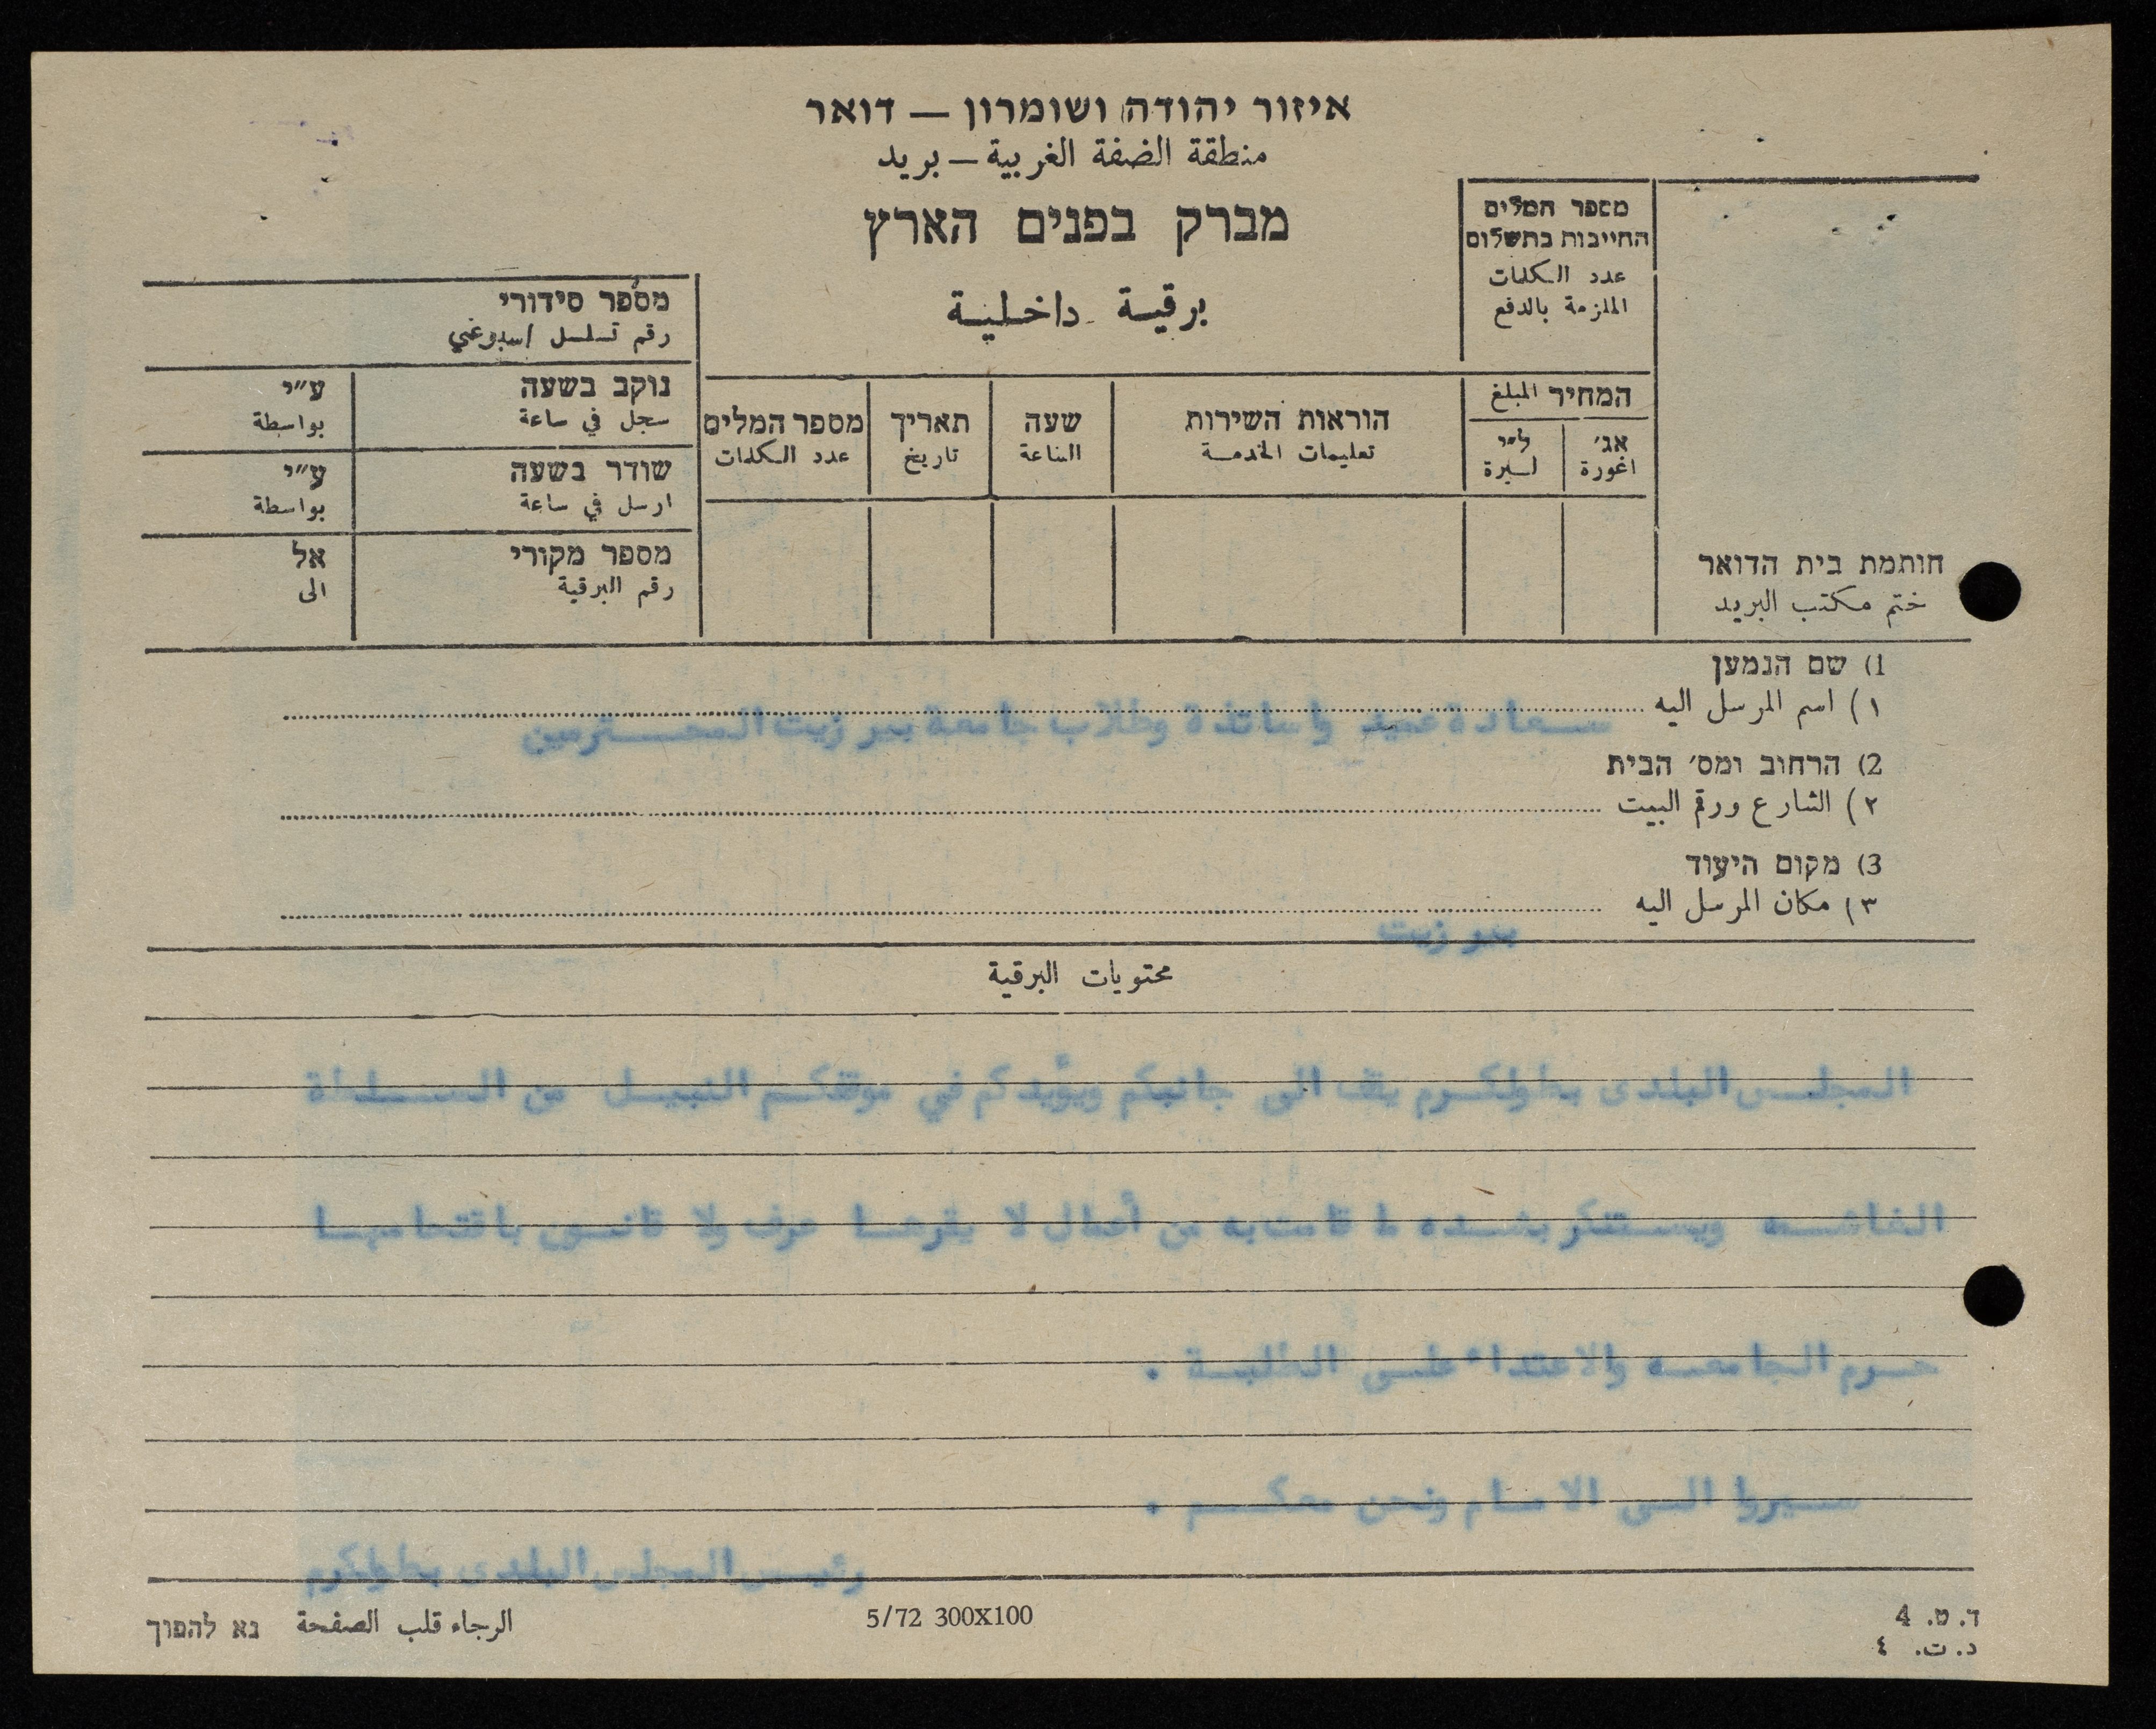 איזור יהודה ושומרון — דואר
منطقة الضفة الغربية — بريد
מברק בפנים הארץ
برقية داخلية
מספר המלים
החייבות בתשלום
عدد الكلمات
الملزمة بالدفع
מספר סידורי
رقم تسلسل اسبوعي
נוקב בשעה ע״י
سجل في ساعة بواسطة
שודר בשעה ע״י
ارسل في ساعة بواسطة
מספר מקורי אל
رقم البرقية الى
המחיר المبلغ
אג׳ ל״י
اغورة ليرة
הוראות השירות
تعليمات الخدمة
שעה
الساعة
תאריך
تاريخ
מספר המלים
عدد الكلمات
חותמת בית הדואר
ختم مكتب البريد
1) שם הנמען
١) اسم المرسل اليه
سعادة عميد واساتذة وطلاب جامعة بير زيت المحترمين
2) הרחוב ומס׳ הבית
٢) الشارع ورقم البيت
3) מקום היעוד
٣) مكان المرسل اليه
بير زيت
محتويات البرقية
المجلس البلدى بطولكرم يقف الى جانبكم ويؤيدكم في موقفكم النبيل من السلطة
الغاشمه ويستنكر بشده ما قامت به من أعمال لا يقرها عرف ولا قانون باقتحامها
حرم الجامعه والاعتداء على الطلبة .
سيروا الى الامام ونحن معكم .
رئيس المجلس البلدى بطولكرم
ד. ט. 4
د. ت. ٤
5/72 300X100
الرجاء قلب الصفحة נא להפוך